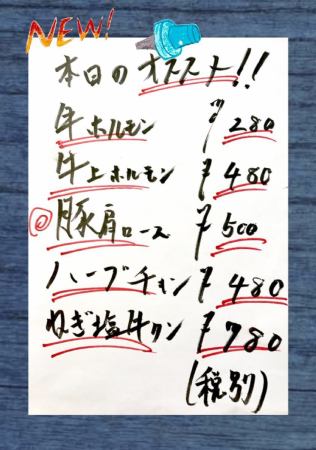 NEW!
本日のオススメ!!
牛ホルモン ¥280
牛上ホルモン ¥480
◎豚肩ロース ¥500
ハーブチキン ¥480
ねぎ塩牛タン ¥780
(税別)